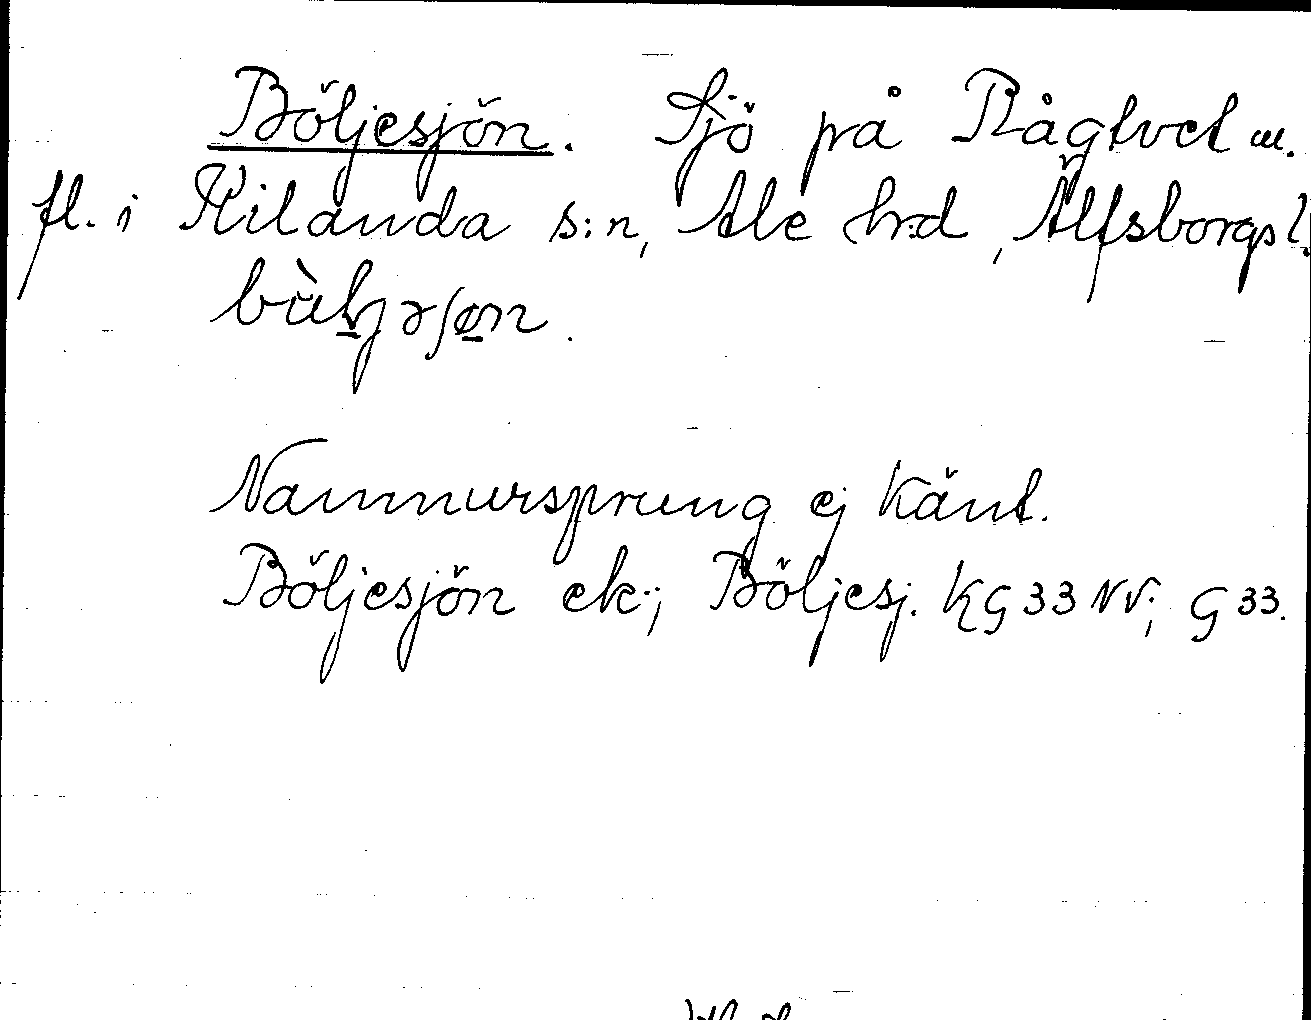 Böljesjön. Sjö på Rågtvet m.
fl. i Kilanda s:n, Ale h:d, Älfsborgs l.
Namnursprung ej känt.
Böljesjön ek; Böljesj. KG 33 NV; G 33.